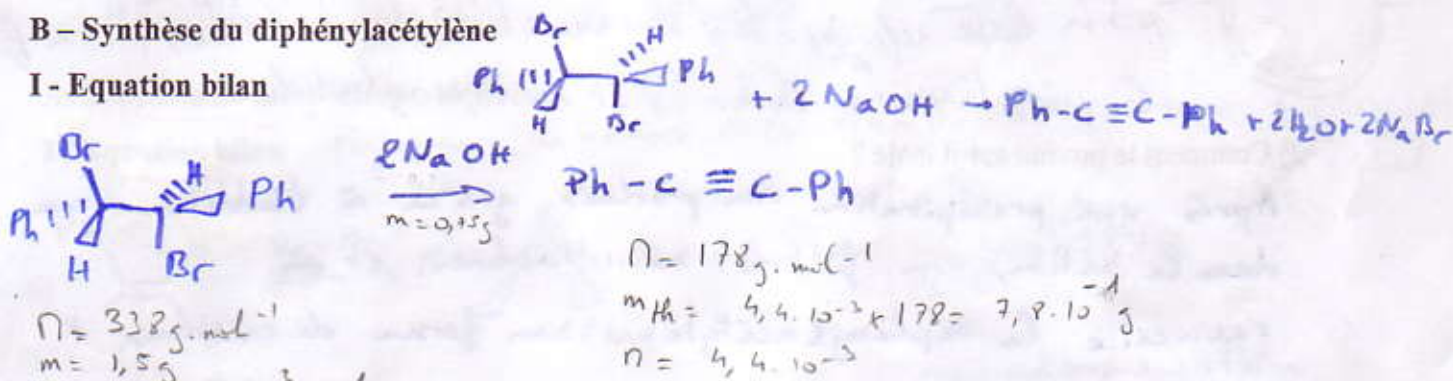 B – Synthèse du diphénylacétylène
I - Equation bilan
Br H
Ph Ph
H Br
+ 2 NaOH → Ph-C≡C-Ph + 2H2O + 2NaBr
Br H
Ph Ph
H Br
2NaOH
m = 0,75g
Ph-C≡C-Ph
M = 338g.mol⁻¹
m = 1,5g
M = 178g.mol⁻¹
mth = 4,4.10⁻³ x 178 = 7,8.10⁻¹ g
n = 4,4.10⁻³